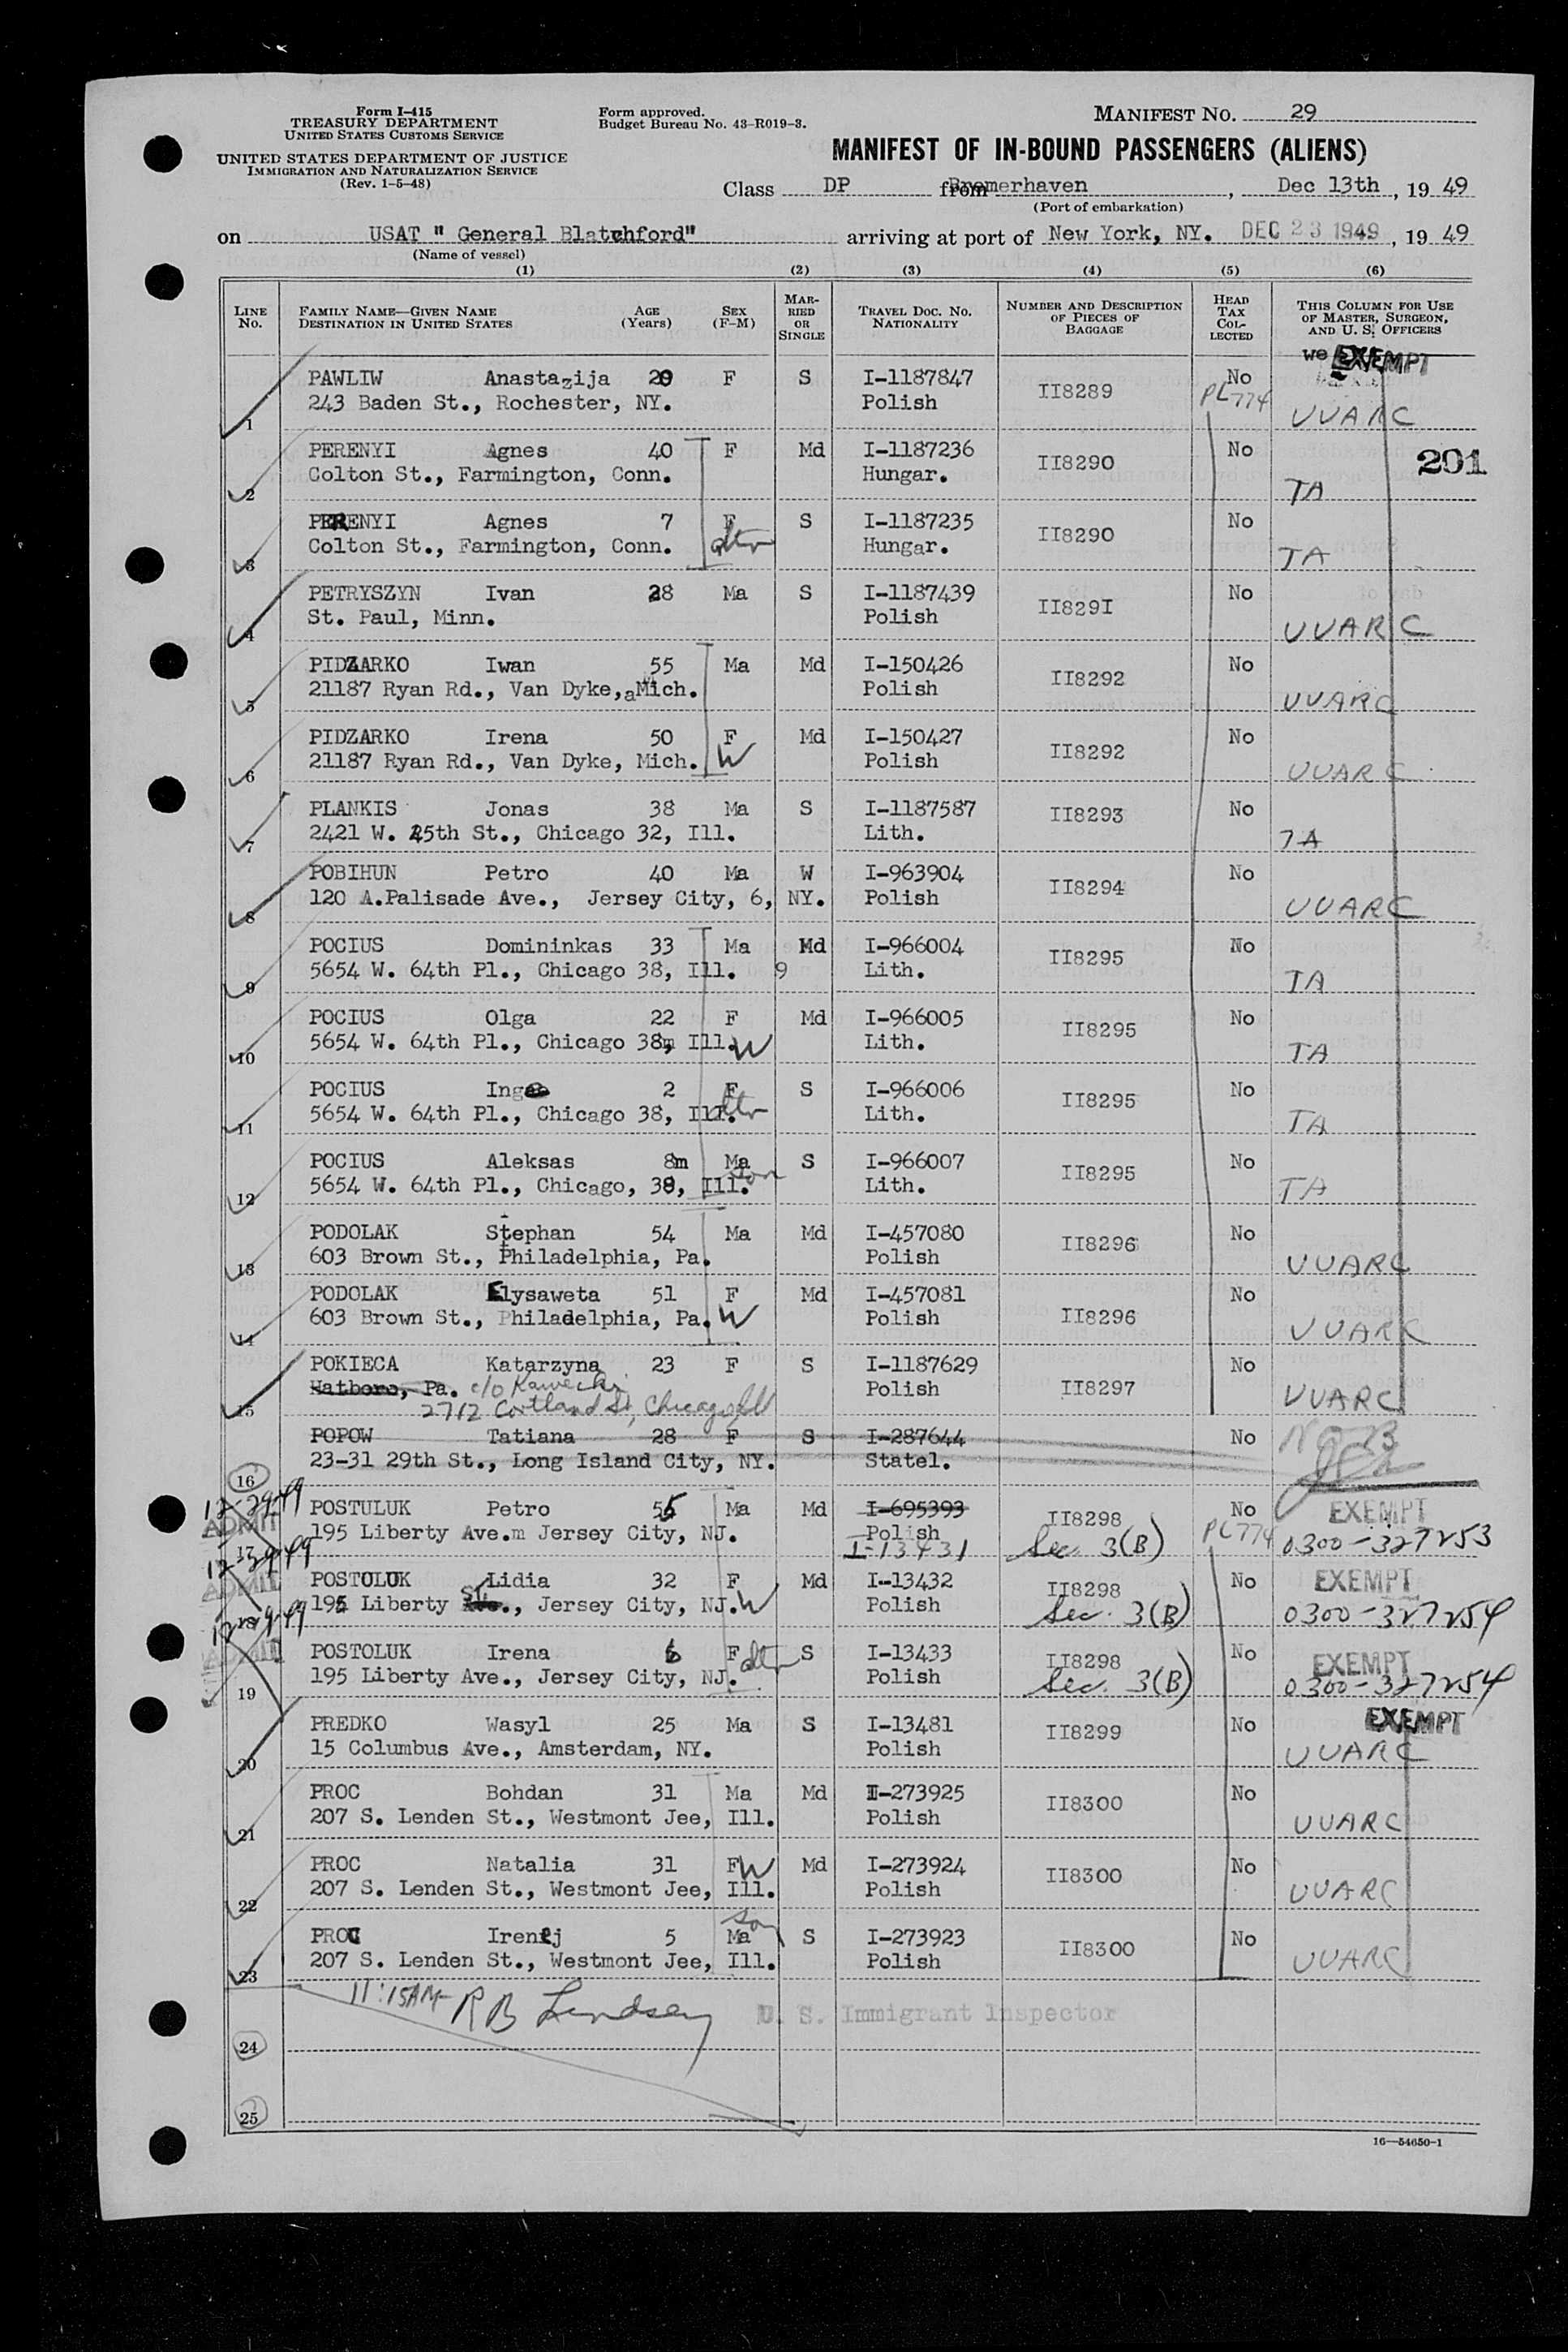 Form I-415
TREASURY DEPARTMENT
UNITED STATES CUSTOMS SERVICE
UNITED STATES DEPARTMENT OF JUSTICE
IMMIGRATION AND NATURALIZATION SERVICE
(Rev. 1-5-48)
Form approved.
Budget Bureau No. 43-R019-3.
MANIFEST NO. 29
MANIFEST OF IN-BOUND PASSENGERS (ALIENS)
Class DP from Bremerhaven, Dec 13th, 19 49
(Port of embarkation)
on USAT " General Blatchford" arriving at port of New York, NY. DEC 23 1949, 19 49
(Name of vessel)
(1) (2) (3) (4) (5) (6)
LINE No. FAMILY NAME—GIVEN NAME DESTINATION IN UNITED STATES AGE (Years) SEX (F-M) MARRIED OR SINGLE TRAVEL DOC. NO. NATIONALITY NUMBER AND DESCRIPTION OF PIECES OF BAGGAGE HEAD TAX COLLECTED THIS COLUMN FOR USE OF MASTER, SURGEON, AND U. S. OFFICERS
we EXEMPT
PAWLIW Anastazija 20 F S I-1187847 II8289 No
1 243 Baden St., Rochester, NY. Polish PL774 UUARC
201
PERENYI Agnes 40 F Md I-1187236 II8290 No
2 Colton St., Farmington, Conn. Hungar. TA
PERENYI Agnes 7 F S I-1187235 II8290 No
3 Colton St., Farmington, Conn. dtr Hungar. TA
PETRYSZYN Ivan 28 Ma S I-1187439 II829I No
4 St. Paul, Minn. Polish UUARC
PIDZARKO Iwan 55 Ma Md I-150426 II8292 No
5 21187 Ryan Rd., Van Dyke,aMich. Polish UUARC
PIDZARKO Irena 50 F Md I-150427 II8292 No
6 21187 Ryan Rd., Van Dyke, Mich. W Polish UUARC
PLANKIS Jonas 38 Ma S I-1187587 II8293 No
7 2421 W. 45th St., Chicago 32, Ill. Lith. TA
POBIHUN Petro 40 Ma W I-963904 II8294 No
8 120 A.Palisade Ave., Jersey City, 6, NY. Polish UUARC
POCIUS Domininkas 33 Ma Md I-966004 II8295 No
9 5654 W. 64th Pl., Chicago 38, Ill. 9 Lith. TA
POCIUS Olga 22 F Md I-966005 II8295 No
10 5654 W. 64th Pl., Chicago 38m Ill. W Lith. TA
POCIUS Inga 2 F S I-966006 II8295 No
11 5654 W. 64th Pl., Chicago 38, Ill. dtr Lith. TA
POCIUS Aleksas 8m Ma son S I-966007 II8295 No
12 5654 W. 64th Pl., Chicago, 38, Ill. Lith. TA
PODOLAK Stephan 54 Ma Md I-457080 II8296 No
13 603 Brown St., Philadelphia, Pa. Polish UUARC
PODOLAK Elysaweta 51 F Md I-457081 II8296 No
14 603 Brown St., Philadelphia, Pa. W Polish UUARC
POKIECA Katarzyna 23 F S I-1187629 II8297 No
15 Hatboro, Pa. c/o Kawecky Polish UUARC
2712 Cortland St, Chicago, Ill
POPOW Tatiana 28 F S I-287644 No
16 23-31 29th St., Long Island City, NY. Statel.
12-29-49 POSTULUK Petro 55 Ma Md I-695393 II8298 No EXEMPT
ADMIT 17 195 Liberty Ave.m Jersey City, NJ. Polish I-13431 Sec. 3(B) PL774 0300-327253
12-29-49 POSTOLUK Lidia 32 F Md I-13432 II8298 No EXEMPT
ADMIT 18 195 Liberty St., Jersey City, NJ. W Polish Sec. 3(B) 0300-327254
12-29-49 POSTOLUK Irena 6 F dtr S I-13433 II8298 No EXEMPT
ADMIT 19 195 Liberty Ave., Jersey City, NJ. Polish Sec. 3(B) 0300-327254
PREDKO Wasyl 25 Ma S I-13481 II8299 No EXEMPT
20 15 Columbus Ave., Amsterdam, NY. Polish UUARC
PROC Bohdan 31 Ma Md I-273925 II8300 No
21 207 S. Lenden St., Westmont Jee, Ill. Polish UUARC
PROC Natalia 31 F W Md I-273924 II8300 No
22 207 S. Lenden St., Westmont Jee, Ill. Polish UUARC
PROC Irenej 5 Ma son S I-273923 II8300 No
23 207 S. Lenden St., Westmont Jee, Ill. Polish UUARC
11:15AM R B Lindsey U. S. Immigrant Inspector
24
25
16—54650-1